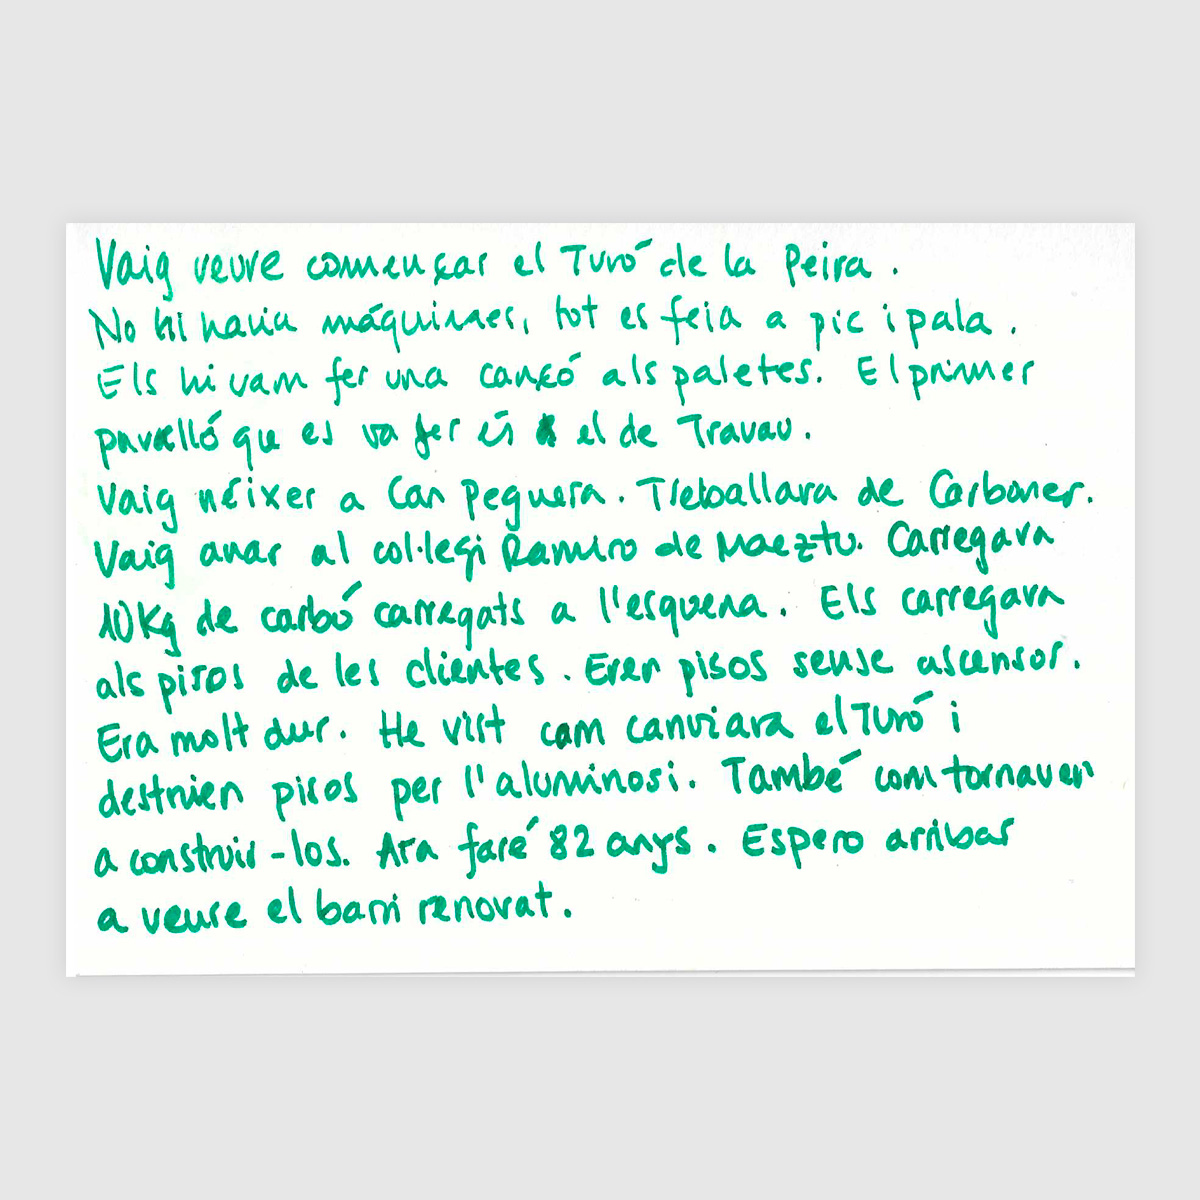 Vaig veure començar el Turó de la Peira.
No hi havia máquines, tot es feia a pic i pala.
Els hi vam fer una cançó als paletes. El primer
pavelló que es va fer és el de Travau.
Vaig néixer a Can Peguera. Treballava de Carboner.
Vaig anar al col·legi Ramiro de Maeztu. Carregava
10Kg de carbó carregats a l'esquena. Els carregava
als pisos de les clientes. Eren pisos sense ascensor.
Era molt dur. He vist com canviava el Turó i
destruien pisos per l'aluminosi. També com tornaven
a construir-los. Ara faré 82 anys. Espero arribar
a veure el barri renovat.